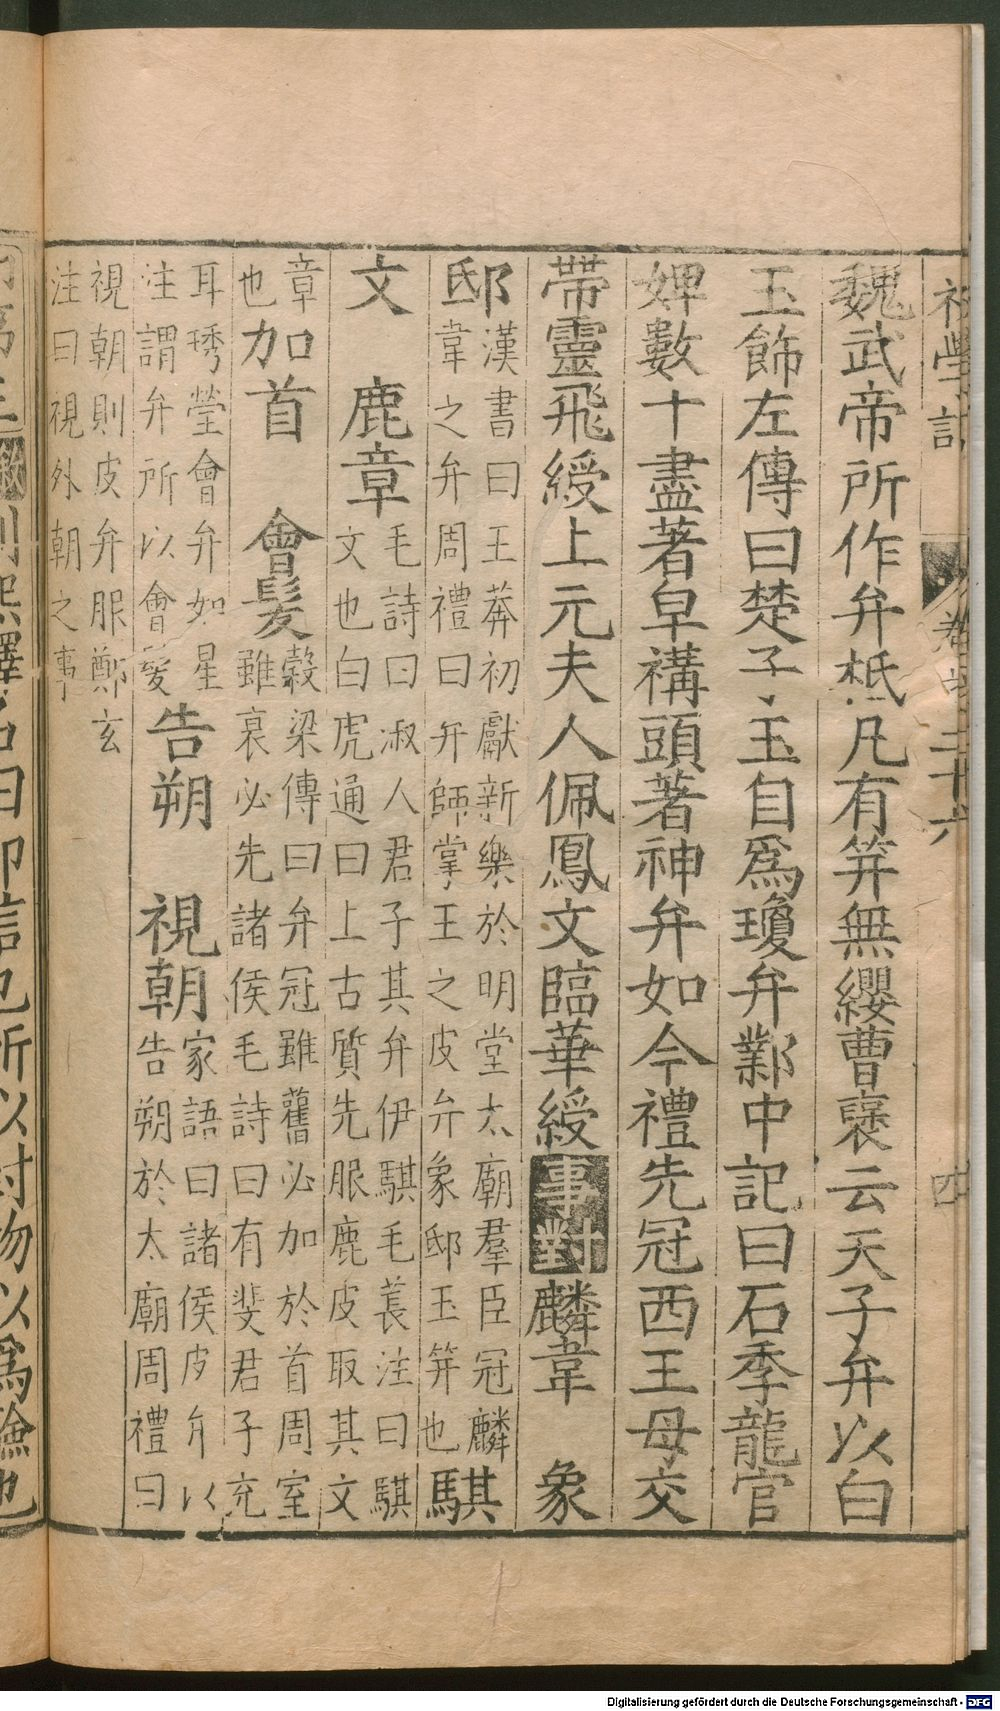 初學記
卷
二十六
四
魏武帝所作弁柢凡有笄無纓曹褒云天子弁以白
玉飾左傳曰楚子玉自爲瓊弁鄴中記曰石季龍官
婢數十盡著皁褠頭著神弁如今禮先冠西王母交
帶靈飛綬上元夫人佩鳳文臨華綬事對麟韋　象
邸漢書曰王莽初獻新樂於明堂太廟羣臣冠麟
韋之弁周禮曰弁師掌王之皮弁象邸玉笄也騏
文　鹿章毛詩曰淑人君子其弁伊騏毛萇注曰騏
文也白虎通曰上古質先服鹿皮取其文
章也加首　會髮穀梁傳曰弁冠雖舊必加於首周室
雖衰必先諸侯毛詩曰有斐君子充
耳琇瑩會弁如星
注謂弁所以會髮告朔　視朝家語曰諸侯皮弁以
告朔於太廟周禮曰
視朝則皮弁服鄭玄
注曰視外朝之事
釋名曰印信也所以封物以爲驗也
Digitalisierung gefördert durch die Deutsche Forschungsgemeinschaft - DFG